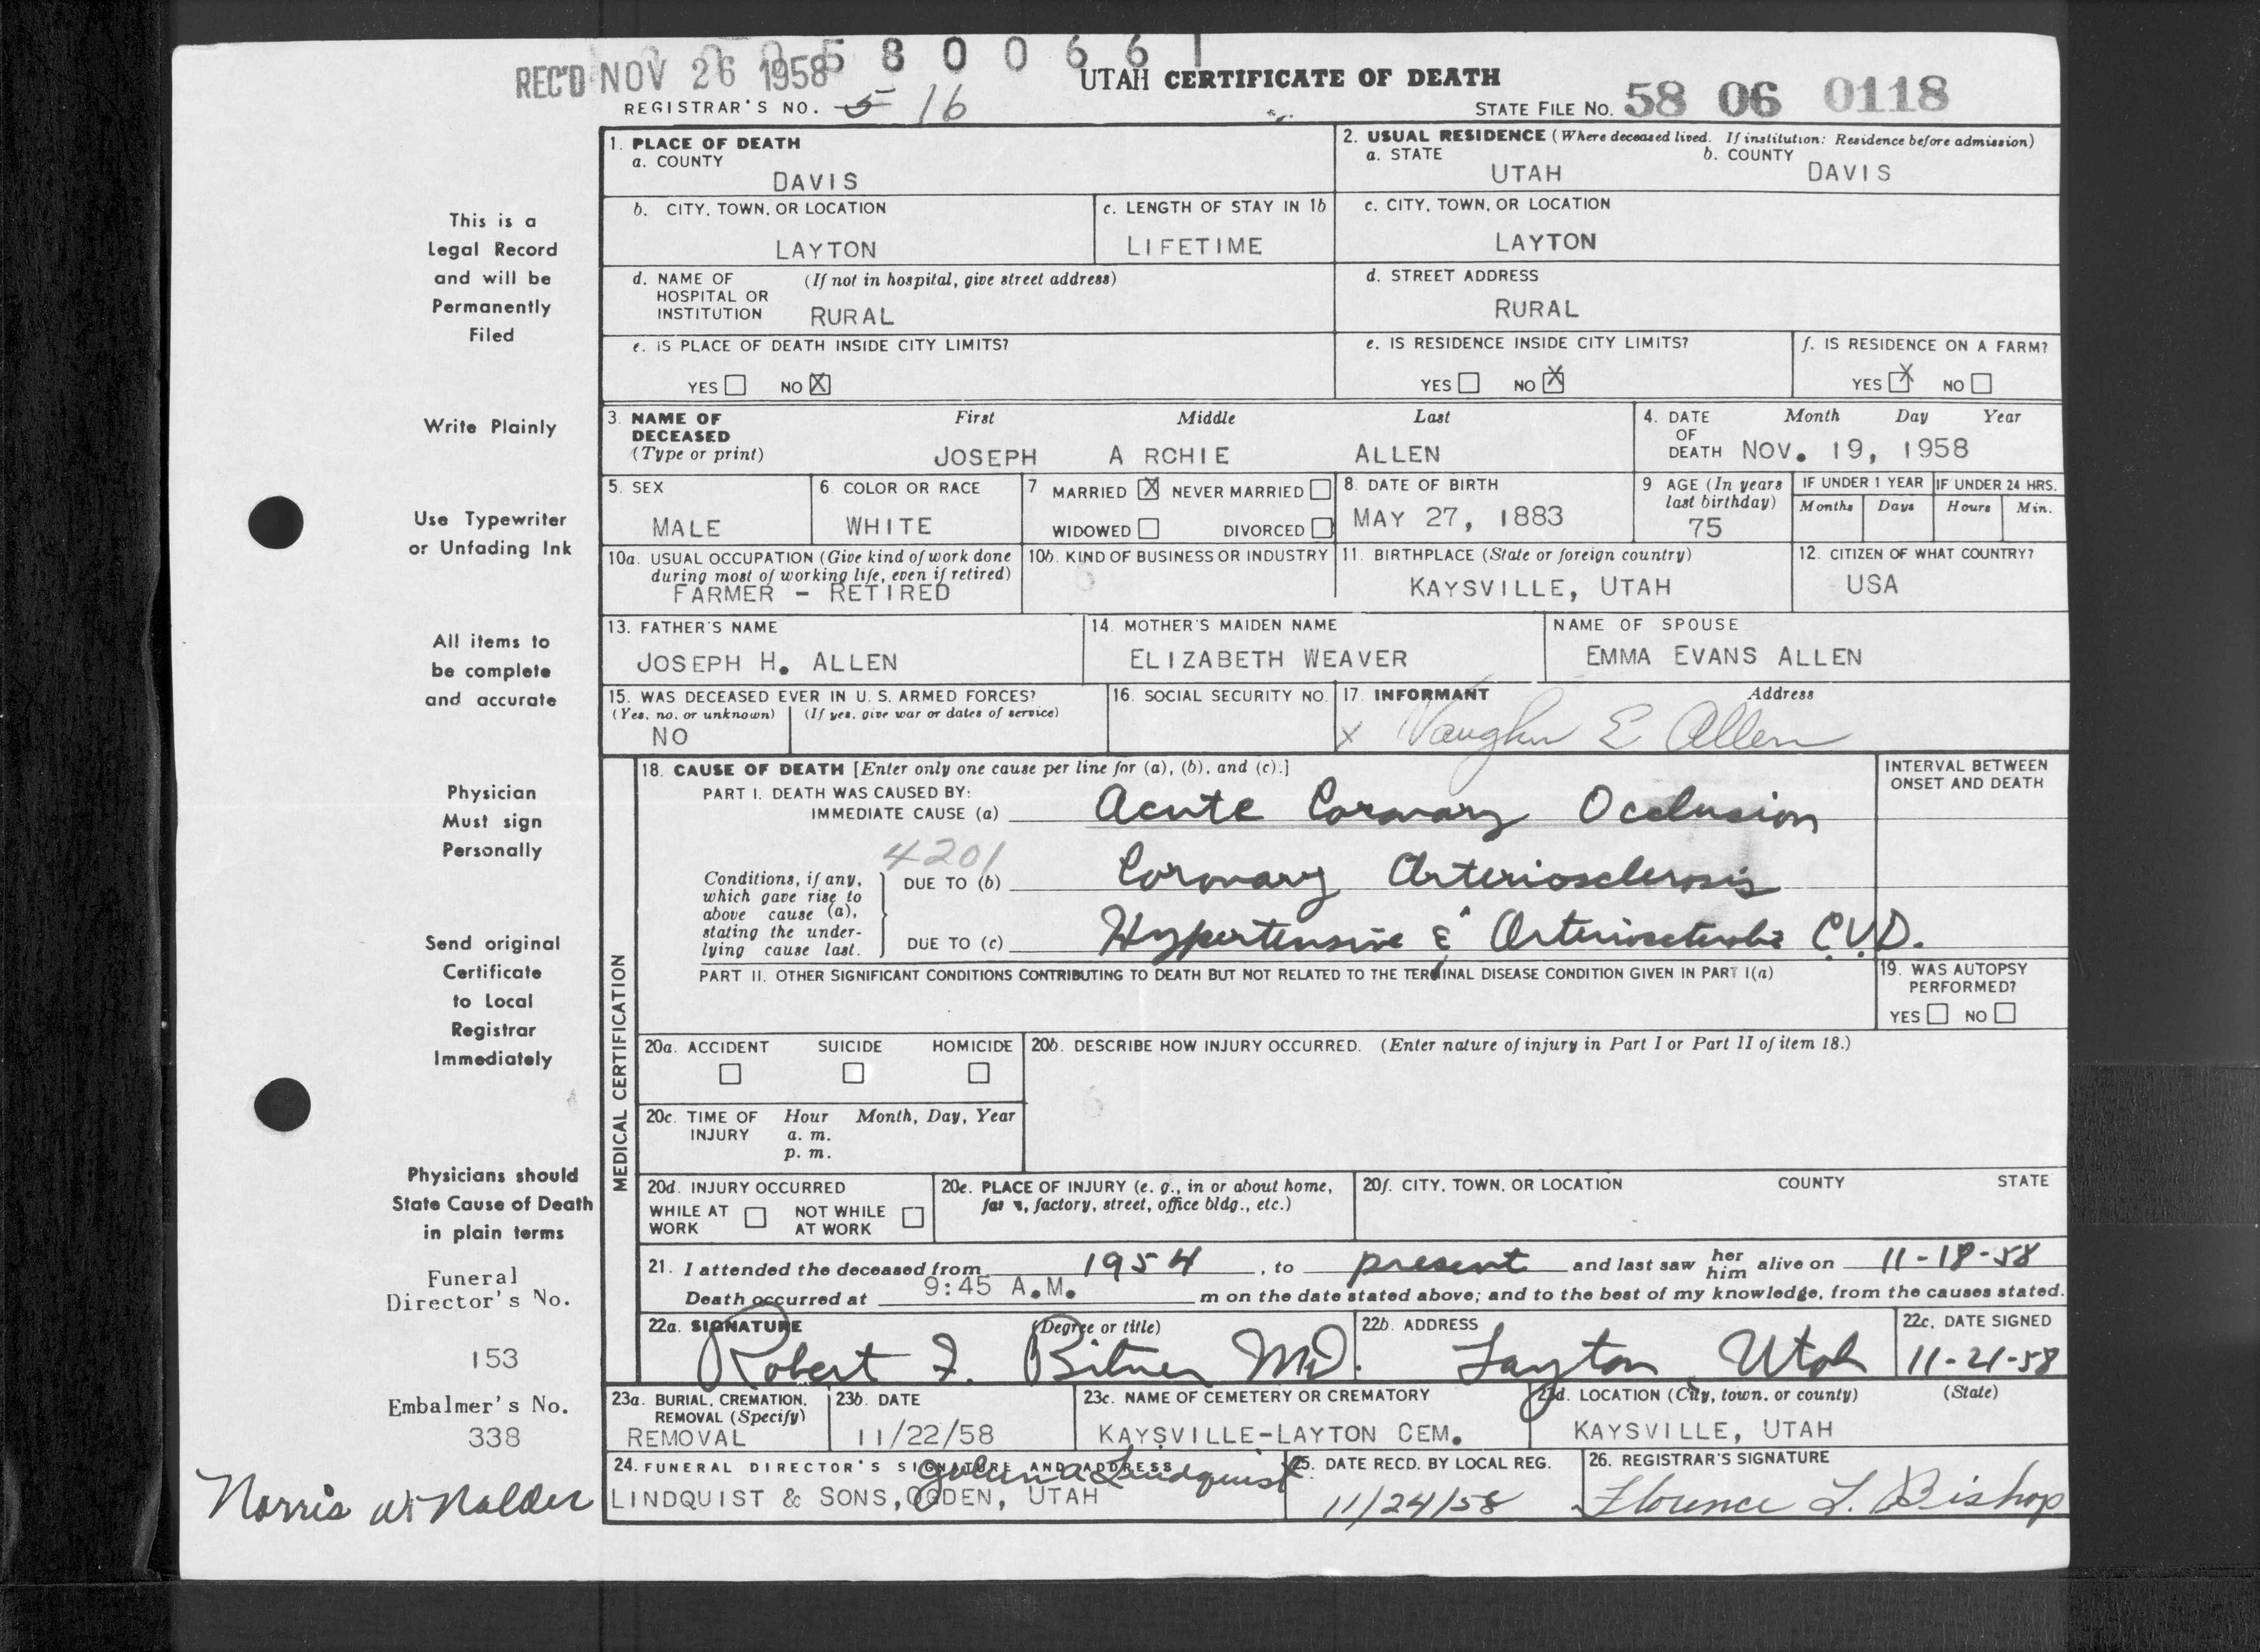 REC'D NOV 26 1958 5 8 0 0 6 6 1
UTAH CERTIFICATE OF DEATH
REGISTRAR'S NO. 5 16
STATE FILE NO. 58 06 0118
1. PLACE OF DEATH
a. COUNTY
DAVIS
2. USUAL RESIDENCE (Where deceased lived. If institution: Residence before admission)
a. STATE b. COUNTY
UTAH DAVIS
b. CITY, TOWN, OR LOCATION
LAYTON
c. LENGTH OF STAY IN 1b
LIFETIME
c. CITY, TOWN, OR LOCATION
LAYTON
d. NAME OF (If not in hospital, give street address)
HOSPITAL OR
INSTITUTION RURAL
d. STREET ADDRESS
RURAL
e. IS PLACE OF DEATH INSIDE CITY LIMITS?
YES NO X
e. IS RESIDENCE INSIDE CITY LIMITS?
YES NO X
f. IS RESIDENCE ON A FARM?
YES X NO
3. NAME OF First Middle Last
DECEASED
(Type or print) JOSEPH A RCHIE ALLEN
4. DATE Month Day Year
OF
DEATH NOV. 19, 1958
5. SEX
MALE
6. COLOR OR RACE
WHITE
7 MARRIED X NEVER MARRIED
WIDOWED DIVORCED
8. DATE OF BIRTH
MAY 27, 1883
9 AGE (In years
last birthday)
75
IF UNDER 1 YEAR IF UNDER 24 HRS.
Months Days Hours Min.
10a. USUAL OCCUPATION (Give kind of work done
during most of working life, even if retired)
FARMER - RETIRED
10b. KIND OF BUSINESS OR INDUSTRY
11. BIRTHPLACE (State or foreign country)
KAYSVILLE, UTAH
12. CITIZEN OF WHAT COUNTRY?
USA
13. FATHER'S NAME
JOSEPH H. ALLEN
14. MOTHER'S MAIDEN NAME
ELIZABETH WEAVER
NAME OF SPOUSE
EMMA EVANS ALLEN
15. WAS DECEASED EVER IN U. S. ARMED FORCES?
(Yes, no, or unknown) (If yes, give war or dates of service)
NO
16. SOCIAL SECURITY NO.
17. INFORMANT Address
x Vaughn E Allen
MEDICAL CERTIFICATION
18. CAUSE OF DEATH [Enter only one cause per line for (a), (b), and (c).]
INTERVAL BETWEEN
ONSET AND DEATH
PART I. DEATH WAS CAUSED BY:
IMMEDIATE CAUSE (a) Acute Coronary Occlusion
4201
Conditions, if any,
which gave rise to
above cause (a),
stating the under-
lying cause last.
DUE TO (b) Coronary Arteriosclerosis
DUE TO (c) Hypertensive & Arteriosclerotic C.V.D.
PART II. OTHER SIGNIFICANT CONDITIONS CONTRIBUTING TO DEATH BUT NOT RELATED TO THE TERMINAL DISEASE CONDITION GIVEN IN PART I(a)
19. WAS AUTOPSY
PERFORMED?
YES NO
20a. ACCIDENT SUICIDE HOMICIDE
20b. DESCRIBE HOW INJURY OCCURRED. (Enter nature of injury in Part I or Part II of item 18.)
20c. TIME OF Hour Month, Day, Year
INJURY a. m.
p. m.
20d. INJURY OCCURRED
WHILE AT NOT WHILE
WORK AT WORK
20e. PLACE OF INJURY (e. g., in or about home,
farm, factory, street, office bldg., etc.)
20f. CITY, TOWN, OR LOCATION COUNTY STATE
21. I attended the deceased from 1954, to present and last saw her him alive on 11-18-58
Death occurred at 9:45 A.M. m on the date stated above; and to the best of my knowledge, from the causes stated.
22a. SIGNATURE (Degree or title)
Robert F. Bitner MD.
22b. ADDRESS
Layton, Utah
22c. DATE SIGNED
11-21-58
23a. BURIAL, CREMATION,
REMOVAL (Specify)
REMOVAL
23b. DATE
11/22/58
23c. NAME OF CEMETERY OR CREMATORY
KAYSVILLE-LAYTON CEM.
23d. LOCATION (City, town, or county) (State)
KAYSVILLE, UTAH
24. FUNERAL DIRECTOR'S SIGNATURE AND ADDRESS
Lindquist
LINDQUIST & SONS, OGDEN, UTAH
25. DATE RECD. BY LOCAL REG.
11/24/58
26. REGISTRAR'S SIGNATURE
Florence L. Bishop
This is a
Legal Record
and will be
Permanently
Filed
Write Plainly
Use Typewriter
or Unfading Ink
All items to
be complete
and accurate
Physician
Must sign
Personally
Send original
Certificate
to Local
Registrar
Immediately
Physicians should
State Cause of Death
in plain terms
Funeral
Director's No.
153
Embalmer's No.
338
Norris W Nalder